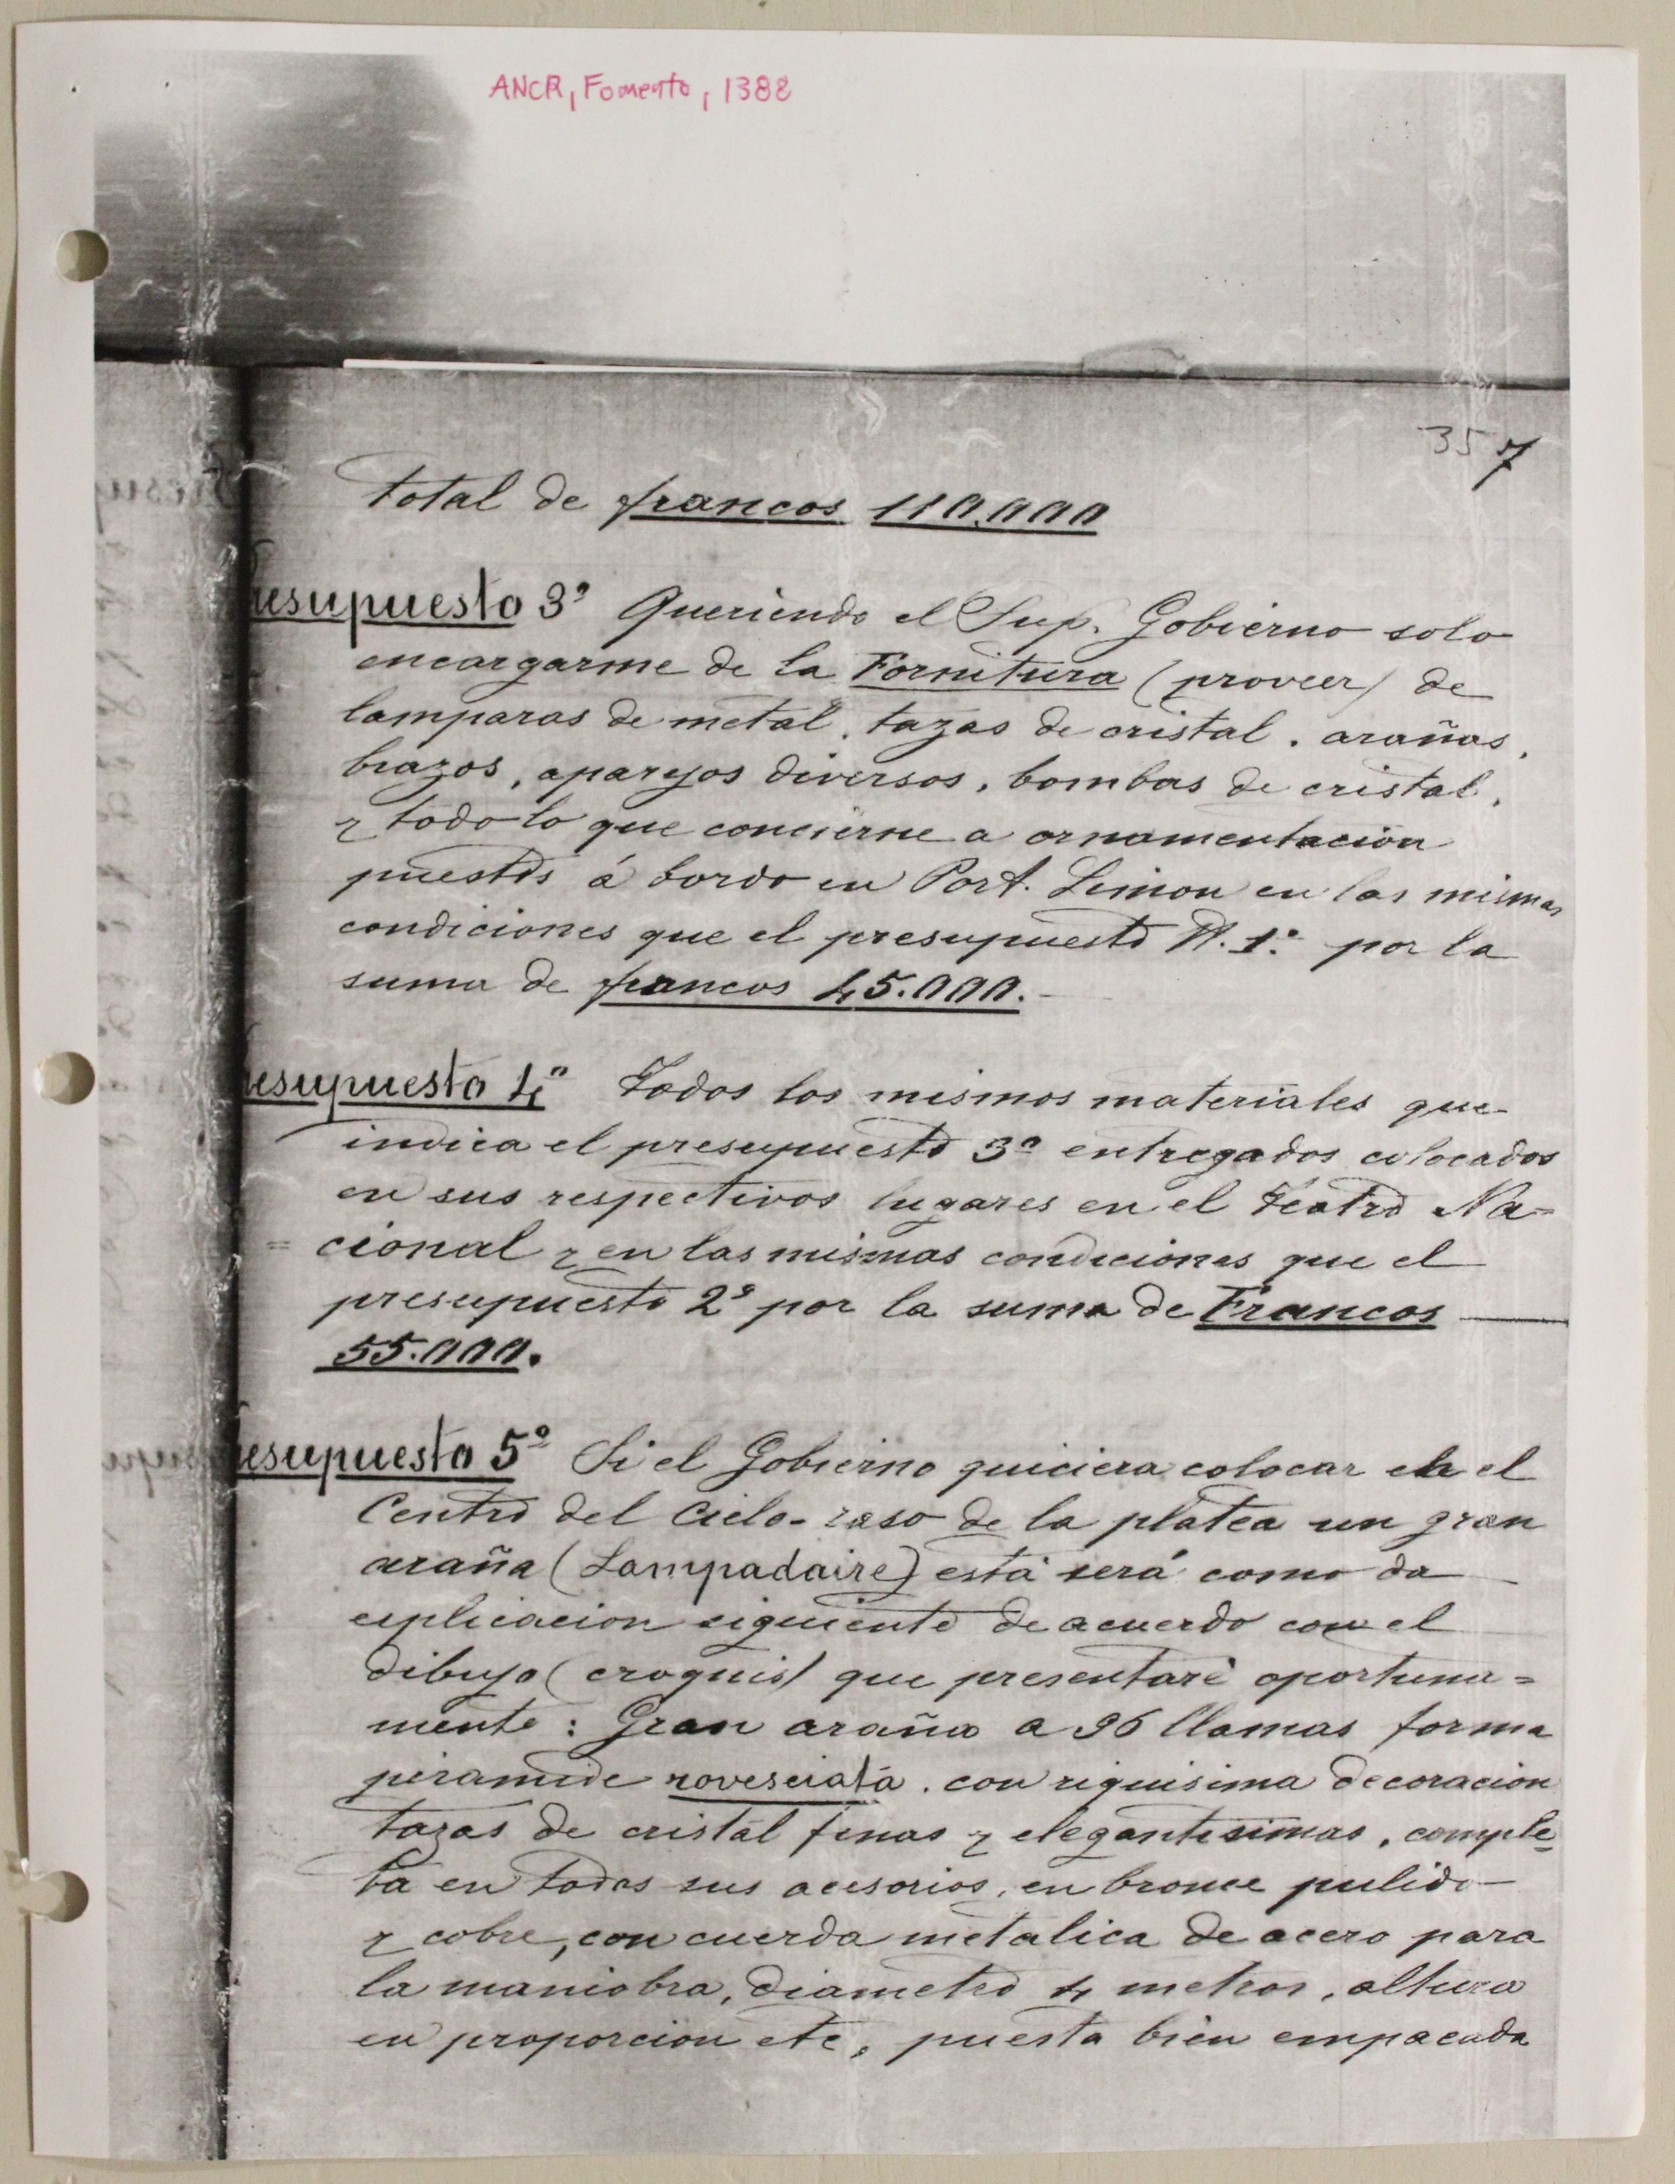 ANCR, Fomento, 1388
357
total de francos 110.000
esupuesto 3º Queriendo el Sup. Gobierno solo
encargarme de la Fornitura (proveer) de
lamparas de metal, tazas de cristal, arañas,
brazos, aparejos diversos, bombas de cristal,
y todo lo que concierne a ornamentacion
puestos á bordo en Port. Limon en las mismas
condiciones que el presupuesto N. 1º por la
suma de francos 45.000.
esupuesto 4º Todos los mismos materiales que
indica el presupuesto 3º entregados colocados
en sus respectivos lugares en el Teatro Na=
=cional y en las mismas condiciones que el
presupuesto 2º por la suma de Francos
55.000.
esupuesto 5º Si el Gobierno quiciera colocar en el
Centro del Cielo-raso de la platea un gran
araña (Lampadaire) está será como da
esplicacion siguiente de acuerdo con el
dibujo (croquis) que presentaré oportuna=
mente: Gran araña a 96 llamas forma
piramide rovesciata. con riquisima decoracion
tazas de cristal finas y elegantisimas, comple=
ta en todos sus acesorios, en bronce pulido
y cobre, con cuerda metalica de acero para
la maniobra, diametro 4 metros, altura
en proporcion etc, puesta bien empacada